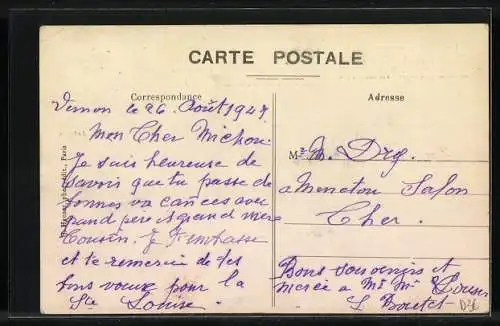 CARTE POSTALE
Correspondance
Adresse
Vernon le 26 Août 1927
Mon Cher Michou
Je suis heureuse de
savoir que tu passe de
bonnes vacances avec
grand père et grand mère
Cousin. Je t'embrasse
et te remercie de tes
bons vœux pour la
Ste Louise.
M. Drg.
a Menetou Salon
Cher.
Bons souvenirs et
Mercie a Mr Mme Cousin
L Boutet